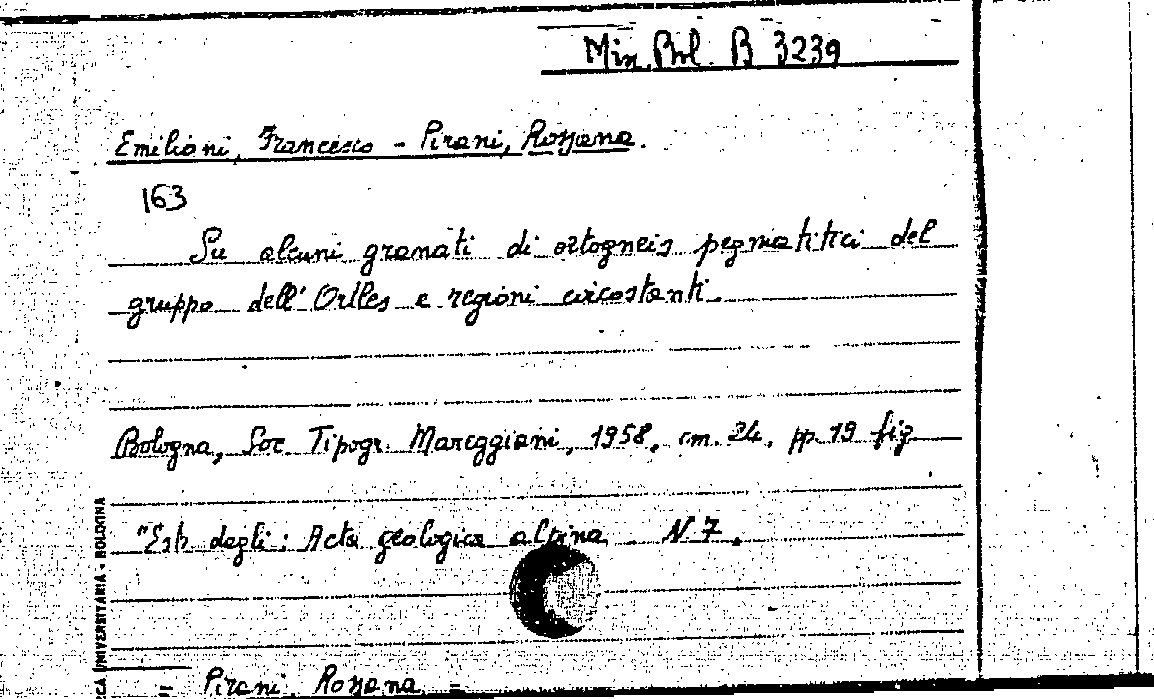 Min. Bol. B 3239
Emiliani, Francesco - Pirani, Rossana.
163
Su alcuni granati di ortogneis pegmatitici del
gruppo dell'Ortles e regioni circostanti.
Bologna, Soc. Tipogr. Mareggiani, 1958, cm. 24, pp. 19 fig
"Estr. degli: Acta geologica alpina - N. 7.
CA UNIVERSITARIA - BOLOGNA
= Pirani, Rossana =